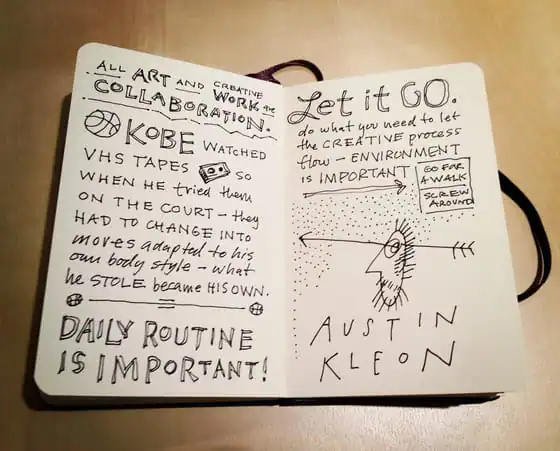 ALL ART AND CREATIVE
WORK the
COLLABORATION.
KOBE WATCHED
VHS TAPES SO
WHEN HE tried them
ON THE COURT – they
HAD TO CHANGE INTO
moves adapted to his
own body style – what
he STOLE became HIS OWN.
DAILY ROUTINE
IS IMPORTANT!
Let it GO.
do what you need to let
the CREATIVE process
flow – ENVIRONMENT
is IMPORTANT
GO FOR
A WALK
SCREW
AROUND
AUSTIN
KLEON